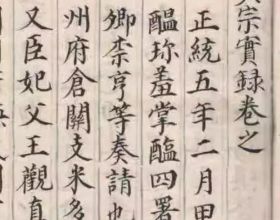 宗實錄卷之
正統五年二月甲
醞珍羞掌醢四署
卿柰亨等奏請也
州府倉關支米多
又臣妃父王觀真